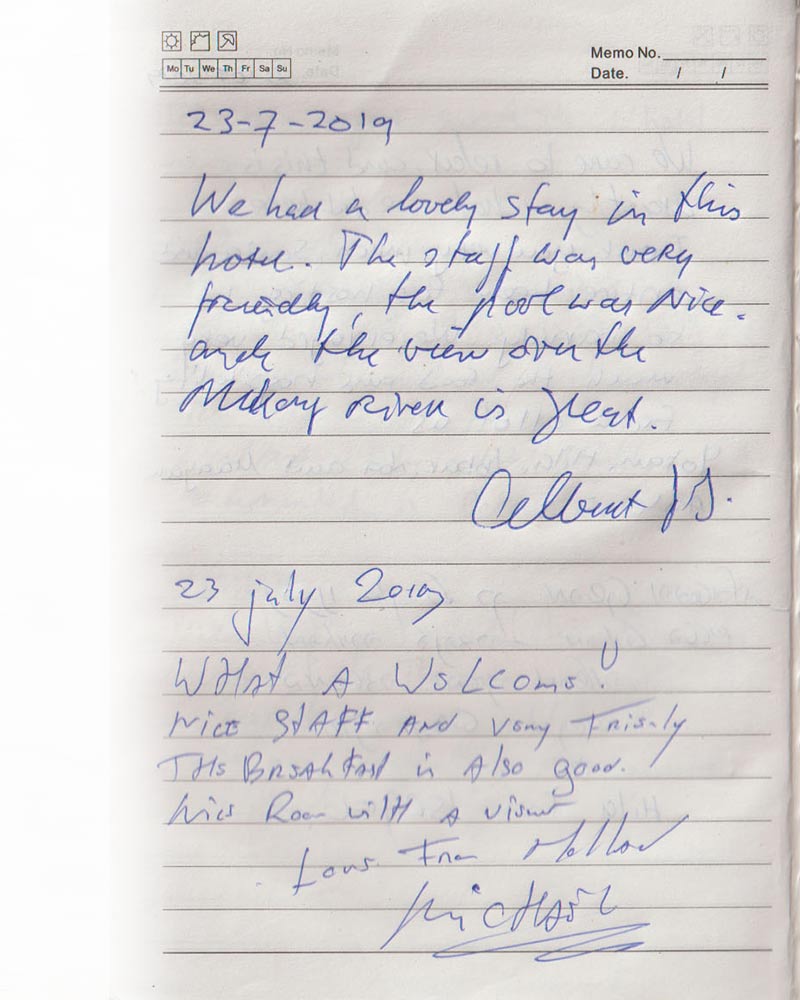 Memo No.
Mo Tu We Th Fr Sa Su
Date. / /
23-7-2019
We had a lovely stay in this
hotel. The staff was very
friendly, the pool was nice.
and the view over the
Mekong River is great.
23 july 2019
WHAt A WELCome!
Nice StAFF AND very
THE BreakFast is Also good.
Nice Room witH A
Love From
MicHaël